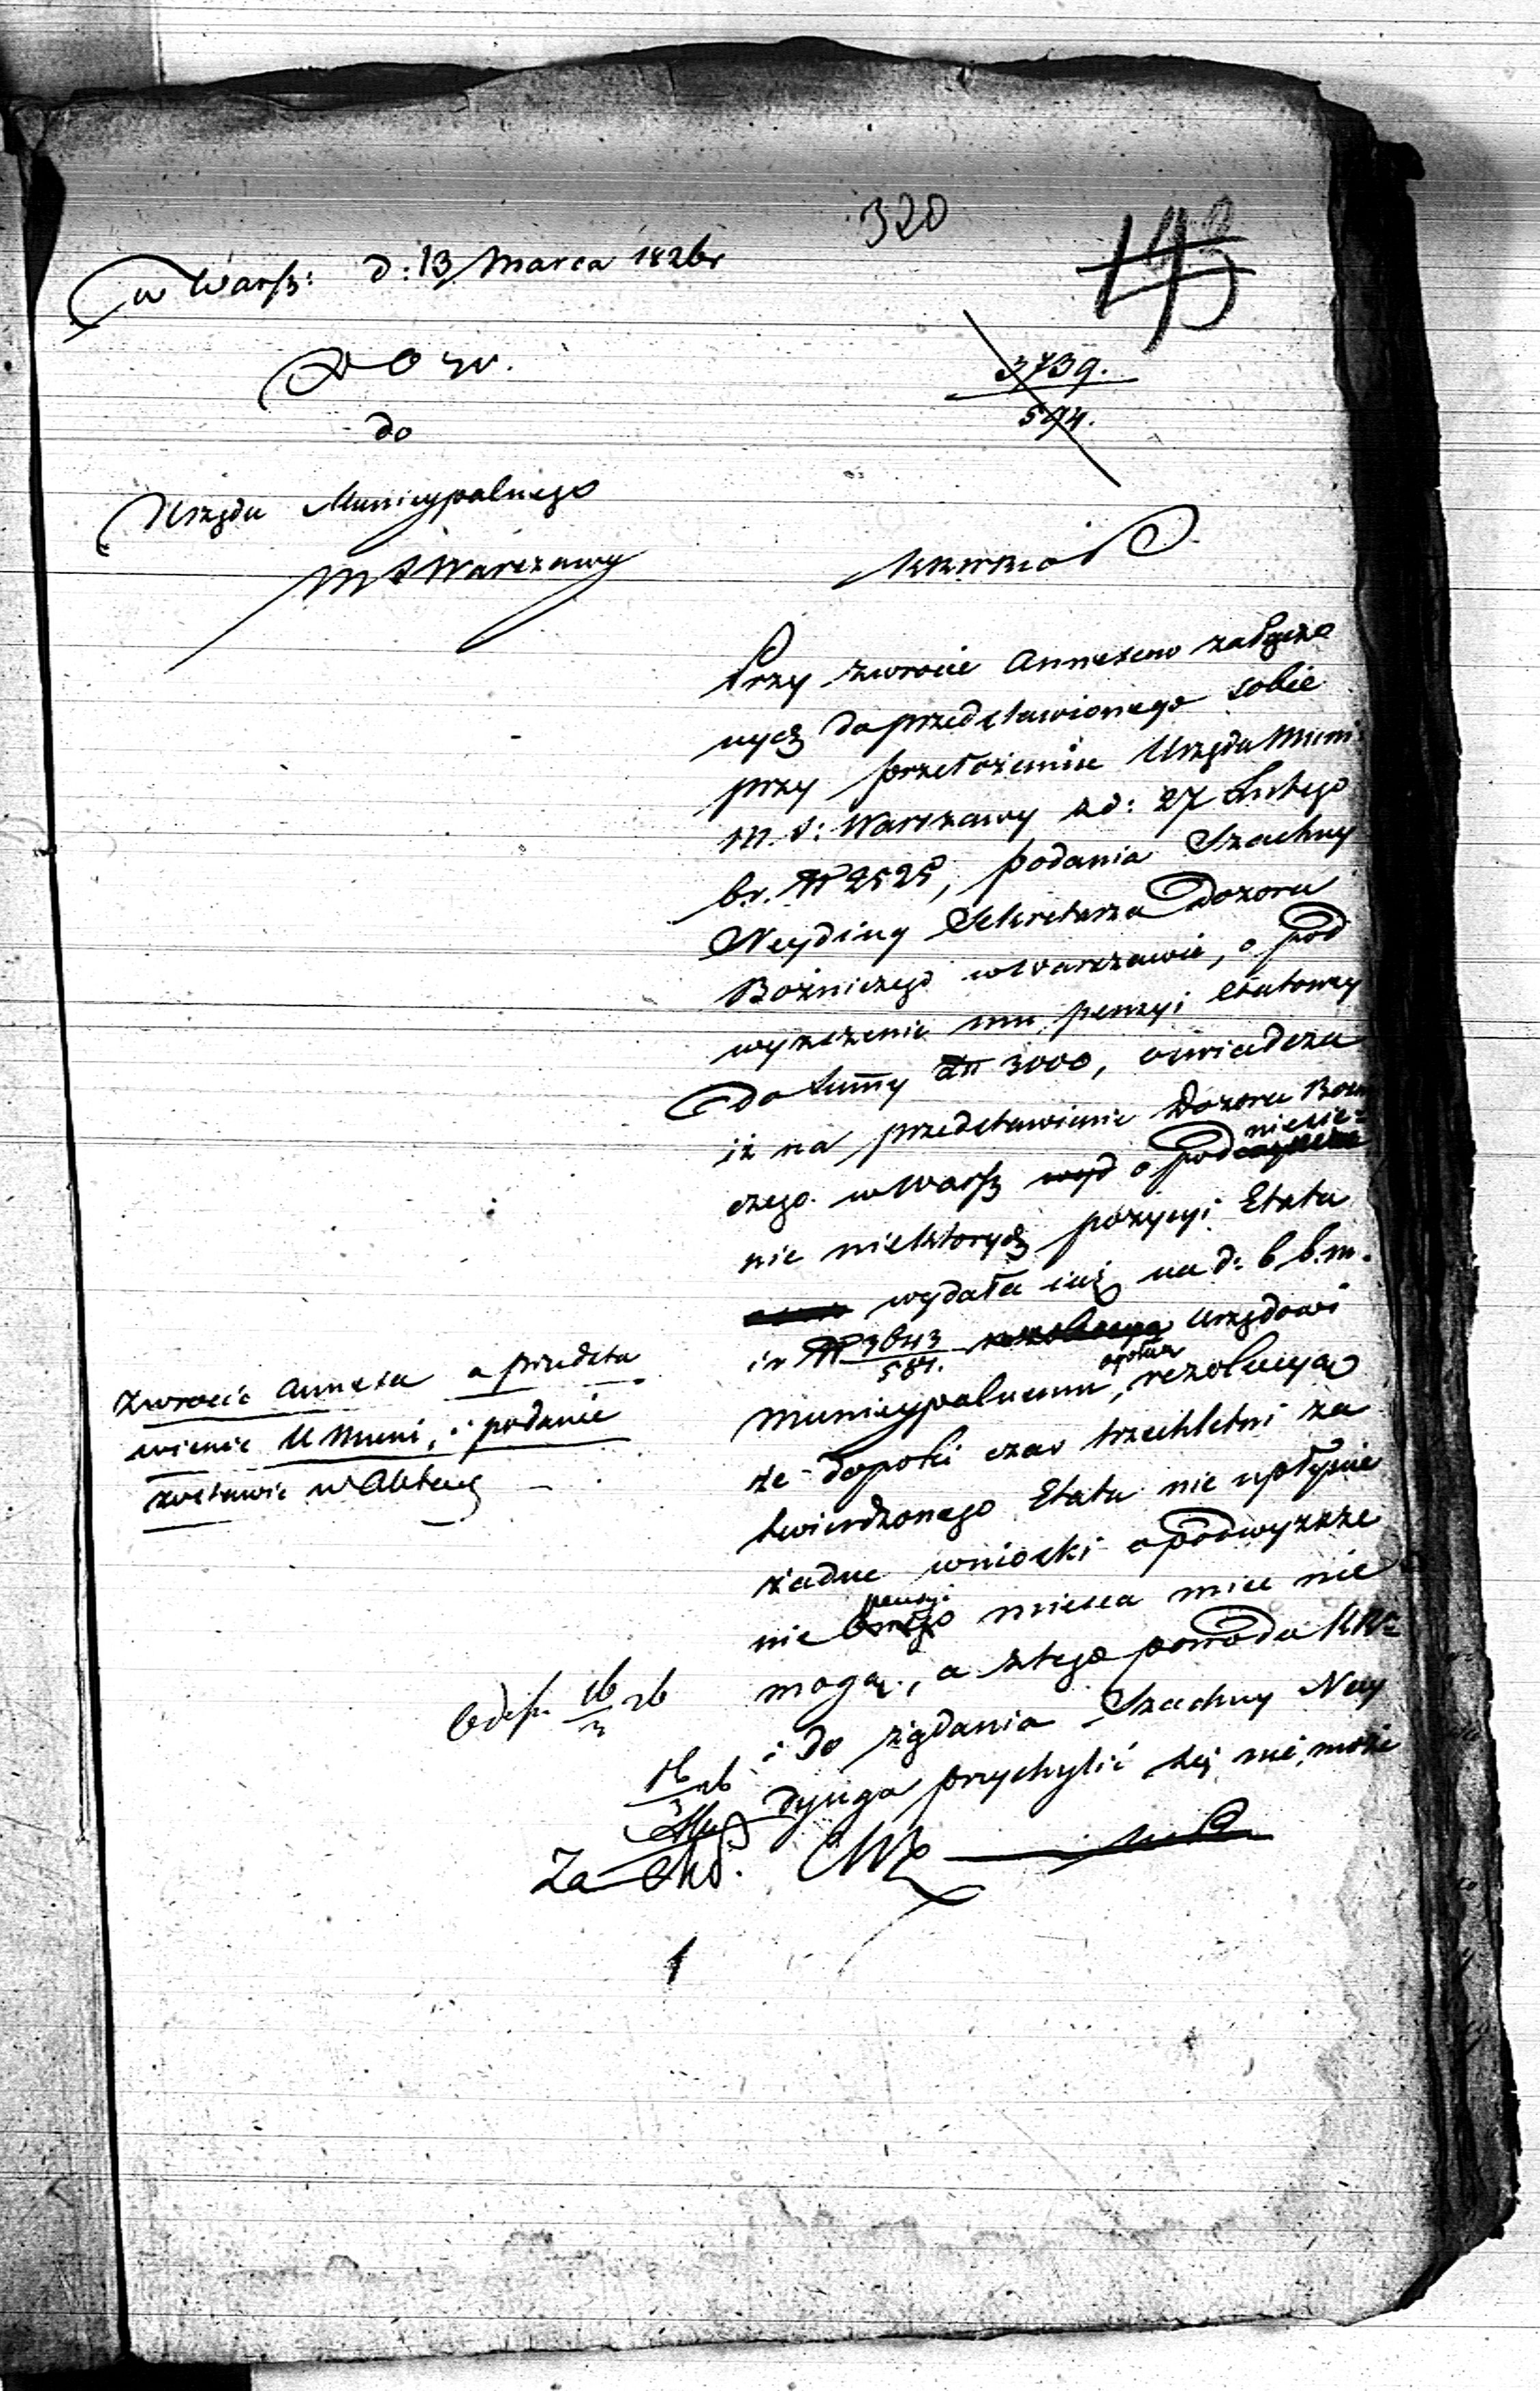 320
143
w Warsz: d: 13 Marca 1826 r
3739.
594.
do
Urzędu Municypalnego
M S Warszawy
Przy zwrocie Annexow załączo
nych do przedstawionego sobie
przy przełożeniu Urzędu Muni:
m. S: Warszawy z d: 27 Lutego
b.r. N 2525, podania Szachny
Neyding Sekretarza Dozoru
Bożniczego w Warszawie, o pod
wyższenie mu pensyi etatowey
do Summy Zł 3000, oświadcza
iż na przedstawienie Dozoru Boż
czego w Warsz o pod niesie=
nie niektorych pozycyi Etatu
wydała iuż na d: 6 b.m.
i r N 3643 rezolucya Urzędowi
584.
Municypalnemu, rezolucyą
że dopoki czas trzechletni za
twierdzonego Etatu nie upłynie
żadne wnioski o podwyższe
nie pensyi mieysca miec nie
mogą, a z tego powodu KR
i do żądania Szachny Ney
dynga przychylić się nie może
Zwrocic annexa a przedsta
wienie U Muni, i podanie
zostawic w Aktach
16 26
3
16 26
3
Za
1